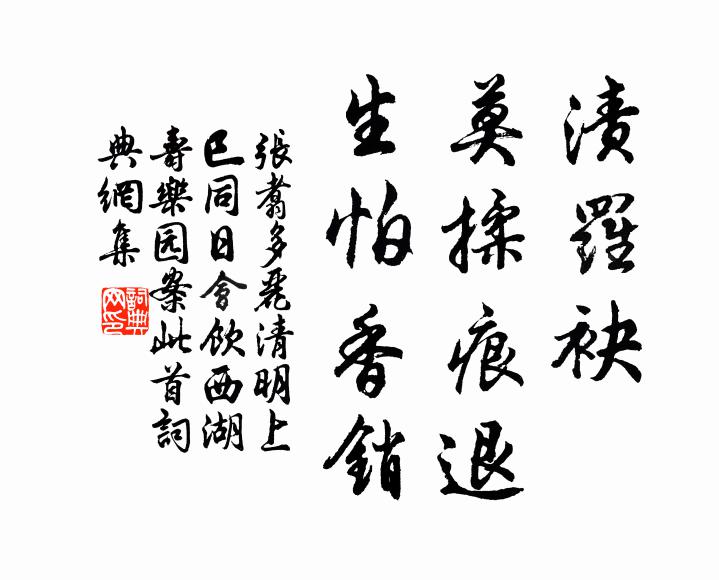 漬羅袂
莫揉痕退
生怕香銷
張翥多麗清明上
巳同日會飲西湖
壽樂园案此首詞
典網集
詞典
网印